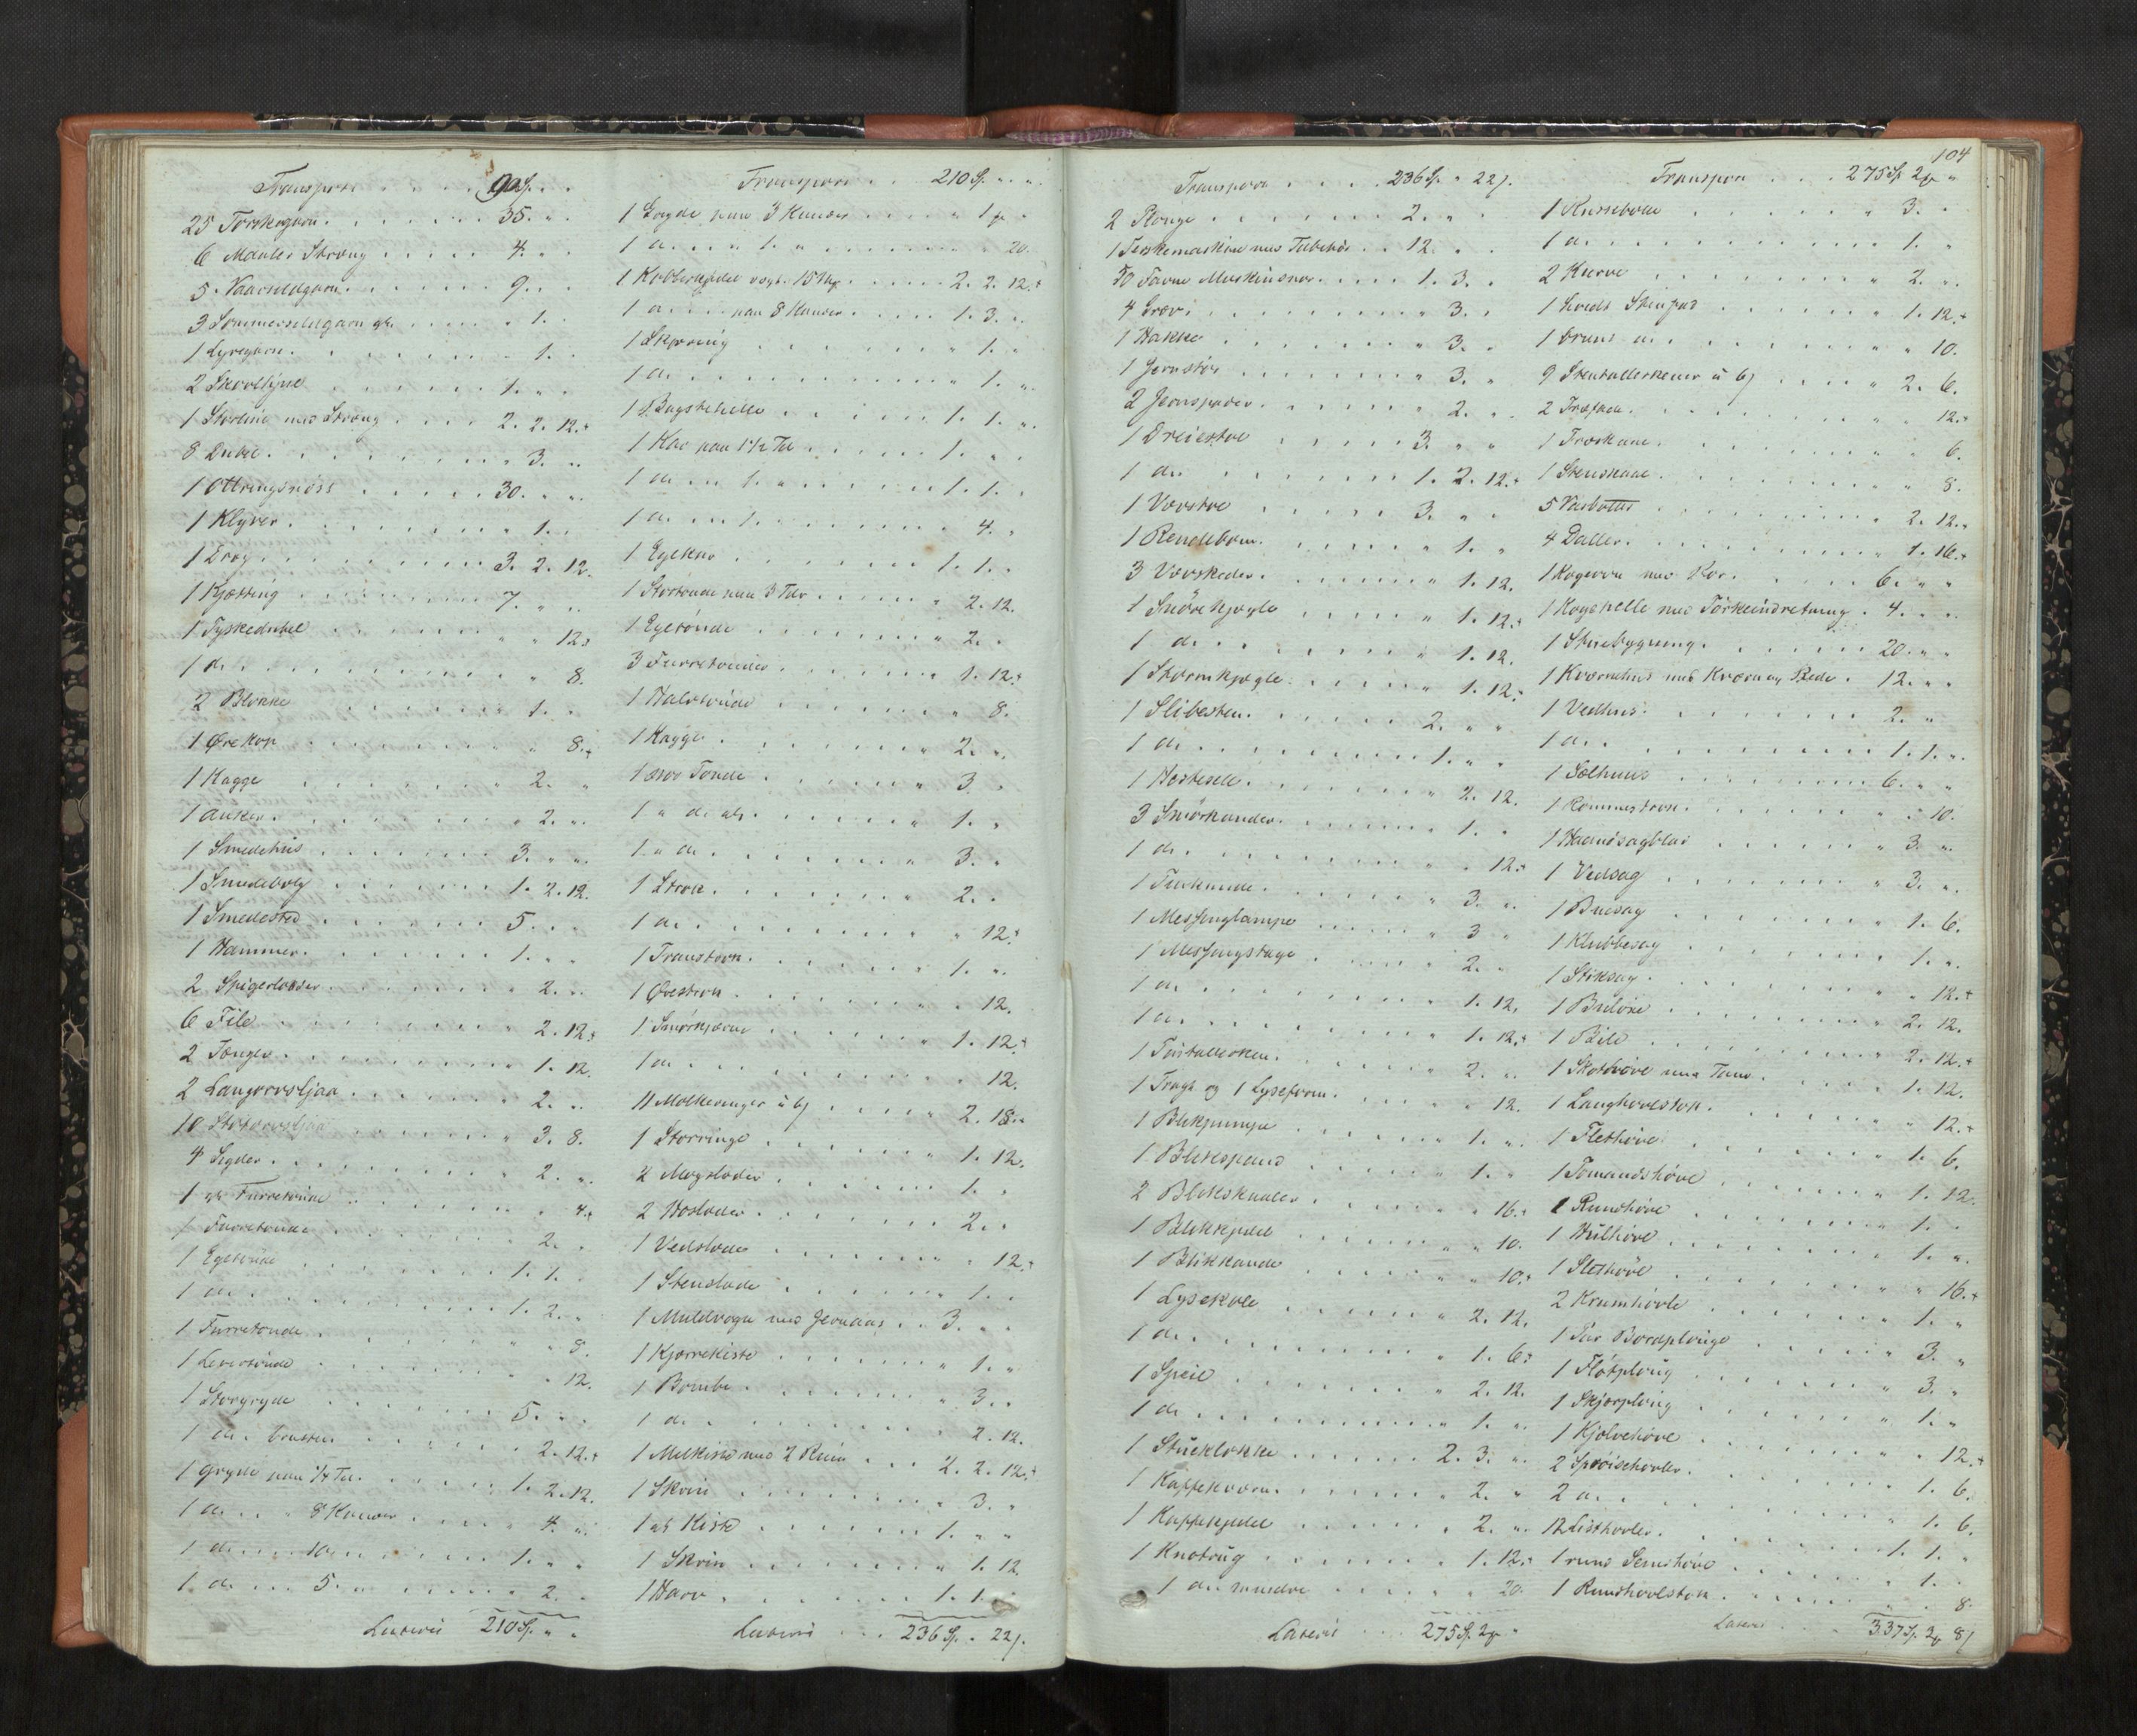 Transport 90 Sp. " "
25 Torskegarn 35. " "
6 Maaler Stræng 4. " "
5 Vaarsildgarn 9. " "
3 Sommersildgarn gl. " 1. "
1 Lyregarn " 1. "
2 Skovlljne 1. " "
1 Storline med Stræng 2. 2. 12.
8 Dubl " 3. "
1 Ottringsnöst 30. " "
1 Klyver " 1. "
1 Drag 3. 2. 12.
1 Kjætting 7. " "
1 Tyskedubel " " 12.
1 do " " 8.
2 Blokke " 1. "
1 Ørekop " " 8.
1 Kagge " 2. "
1 Anker " 2. "
1 Smedehus 3. " "
1 Smedebelg 1. 2. 12.
1 Smedested 5. " "
1 Hammer 1. " "
2 Spigerlodder " 2. "
6 File " 2. 12.
2 Tænger " 1. 12.
2 Langorvsljaa " 2. "
10 Stutorvsljaa " 3. 8.
4 Sigder " 2. "
1 gl. Furretönde " " 4.
1 Furretønde " 2. "
1 Egetönde 1. 1. "
1 do 1. 2. "
1 Furretönde " " 8.
1 Levertönde " " 12.
1 Storgryde 5. " "
1 do brusten " 2. 12.
1 Gryde paa ¼ Td. 1. 2. 12.
1 do " 8 Kander " 4. "
1 do " 10 " 1. " "
1 do " 5. " " 2. "
Lateris 210 Sp. " "
Transport 210 Sp. " "
1 Gryde paa 3 Kander " 1 "
1 do " 1. " " " 20.
1 Kobberkjedel vægt. 15 2. 2. 12.
1 do paa 8 Kander 1. 3. "
1 Skjæring " 1. "
1 do " 1. "
1 Bagstehelle 1. 1. "
1 Kar paa 1½ Td 1. " "
1 do " 1. " 1. 1. "
1 do " 1. " 4. "
1 Egekar 1. 1. "
1 Stortönde paa 3 Tdr " 2. 12.
1 Egetönde " 2. "
3 Furretönder " 1. 12.
1 Halvtönde " " 8.
1 Kagge " 2. "
1 stor Tønde " 3. "
1 " do gl. " 1. "
1 " do " 3. "
1 Strok " 2. "
1 do " " 12.
1 Transtrok " 1. "
1 Ørestrok " " 12.
1 Smørkjærne " 1. 12.
1 do " " 12.
11 Molkeringer à 6 " 2. 18.
1 Storringe " 1. 12.
2 Møgsloder " 1. "
2 Hösloder " 2. "
1 Vedslode " " 12.
1 Stenslode " 1. "
1 Muldvogn med Jernaas 3. " "
1 Kjærrekiste " 1. "
1 Bomba " 3. "
1 do " 2. 12.
1 Melkiste med 2 Rum 2. 2. 12.
1 Skrin " 3. "
1 gl. Kiste 1. " "
1 Skrin " 1. 12.
1 Harv 1. 1. "
Lateris 236 Sp. " 22
104
Transport 236 Sp. " 22
2 Plouge 2. " "
1 Tærskemaskine med Tilbehör 12. " "
50 Favne Maskinsnor 1. 3. "
4 Grev " 3. "
1 Hakke " 3. "
1 Jernstör " 3. "
2 Jernspader " 2. "
1 Dreiestol 3. " "
1 do 1. 2. 12.
1 Vævstol 3. " "
1 Rendebom " 1. "
3 Vævskeder " 1. 12.
1 Snörekjægle " 1. 12.
1 do " 1. 12.
1 Stormkjægle " 1. 12.
1 Slibesten 2. " "
1 do 1. " "
1 Hestesele " 2. 12.
3 Smörkander " 1. "
1 do " " 12.
1 Tinkande " 3. "
1 Messinglampe " 3 "
1 Messingstage " 2. "
1 do " 1. 12.
1 do " 1. 12.
1 Tintallerken " 2. "
1 Tragt og 1 Lyseform " " 12.
1 Blikpumpe " 1. "
1 Blikspand " 1. "
2 Blikskaaler " " 16.
1 Blikkjedel " " 10.
1 Blikkande " " 10.
1 Lysekole " 2. 12.
1 do " 1. 6.
1 Speil " 2. 12.
1 do " 1. "
1 Stueklokke 2. 3. "
1 Kaffekværn " 2. "
1 Kaffekjedel " 2. "
1 Knotrug " 1. 12.
1 do mindre " " 20.
Lateris 275 Sp. 2 "
Transport 275 Sp 2 "
1 Kurvebolle " 3. "
1 do " 1. "
2 Kurve " 2. "
1 hvidt Stenfad " 1. 12.
1 brunt do " " 10.
9 Stentallerkener à 6 " 2. 6.
2 Træfade " " 12.
1 Træskaal " " 6.
1 Stenskaal " " 8.
5 Vasbötter " 2. 12.
4 Daller " 1. 16.
1 Kogeovn med Rør 6. " "
1 Kogehelle med Tørkeindretning 4. " "
1 Stuebygning 20. " "
1 Kværnehus med Kværn og Rede 12. " "
1 Vedhus 2. " "
1 do 1. 1. "
1 Sælhuus 6. " "
1 Rommestrok " " 10.
1 Haandsagblad " 3. "
1 Vedsag " 3. "
1 Buesag " 1. 6.
1 Klubbesag " 1. "
1 Stiksag " " 12.
1 Bulöxe " 2. 12.
1 Bile " 2. 12.
1 Skothövl med Tand " 1. 12.
1 Langhovlstok " " 12.
1 Flethövl " 1. 6.
1 Tomandshövl " 1. 12.
1 Rundhövl " 1. "
1 Hulhövl " 1. "
1 Slethövl " " 16.
2 Krumhövle " 1. "
1 Par Bordplouge " 3. "
1 Flötploug " 3. "
1 Skjørploug " 1. "
1 Kjølvehövl " " 12.
2 Sprösehovler " 1. 6.
2 do " 1. 6.
12 Listhovler 1. 1. "
1 rund Semshövl " 1. "
1 Rundhovlstok " " 8.
Lateris 337 Sp. 3 8